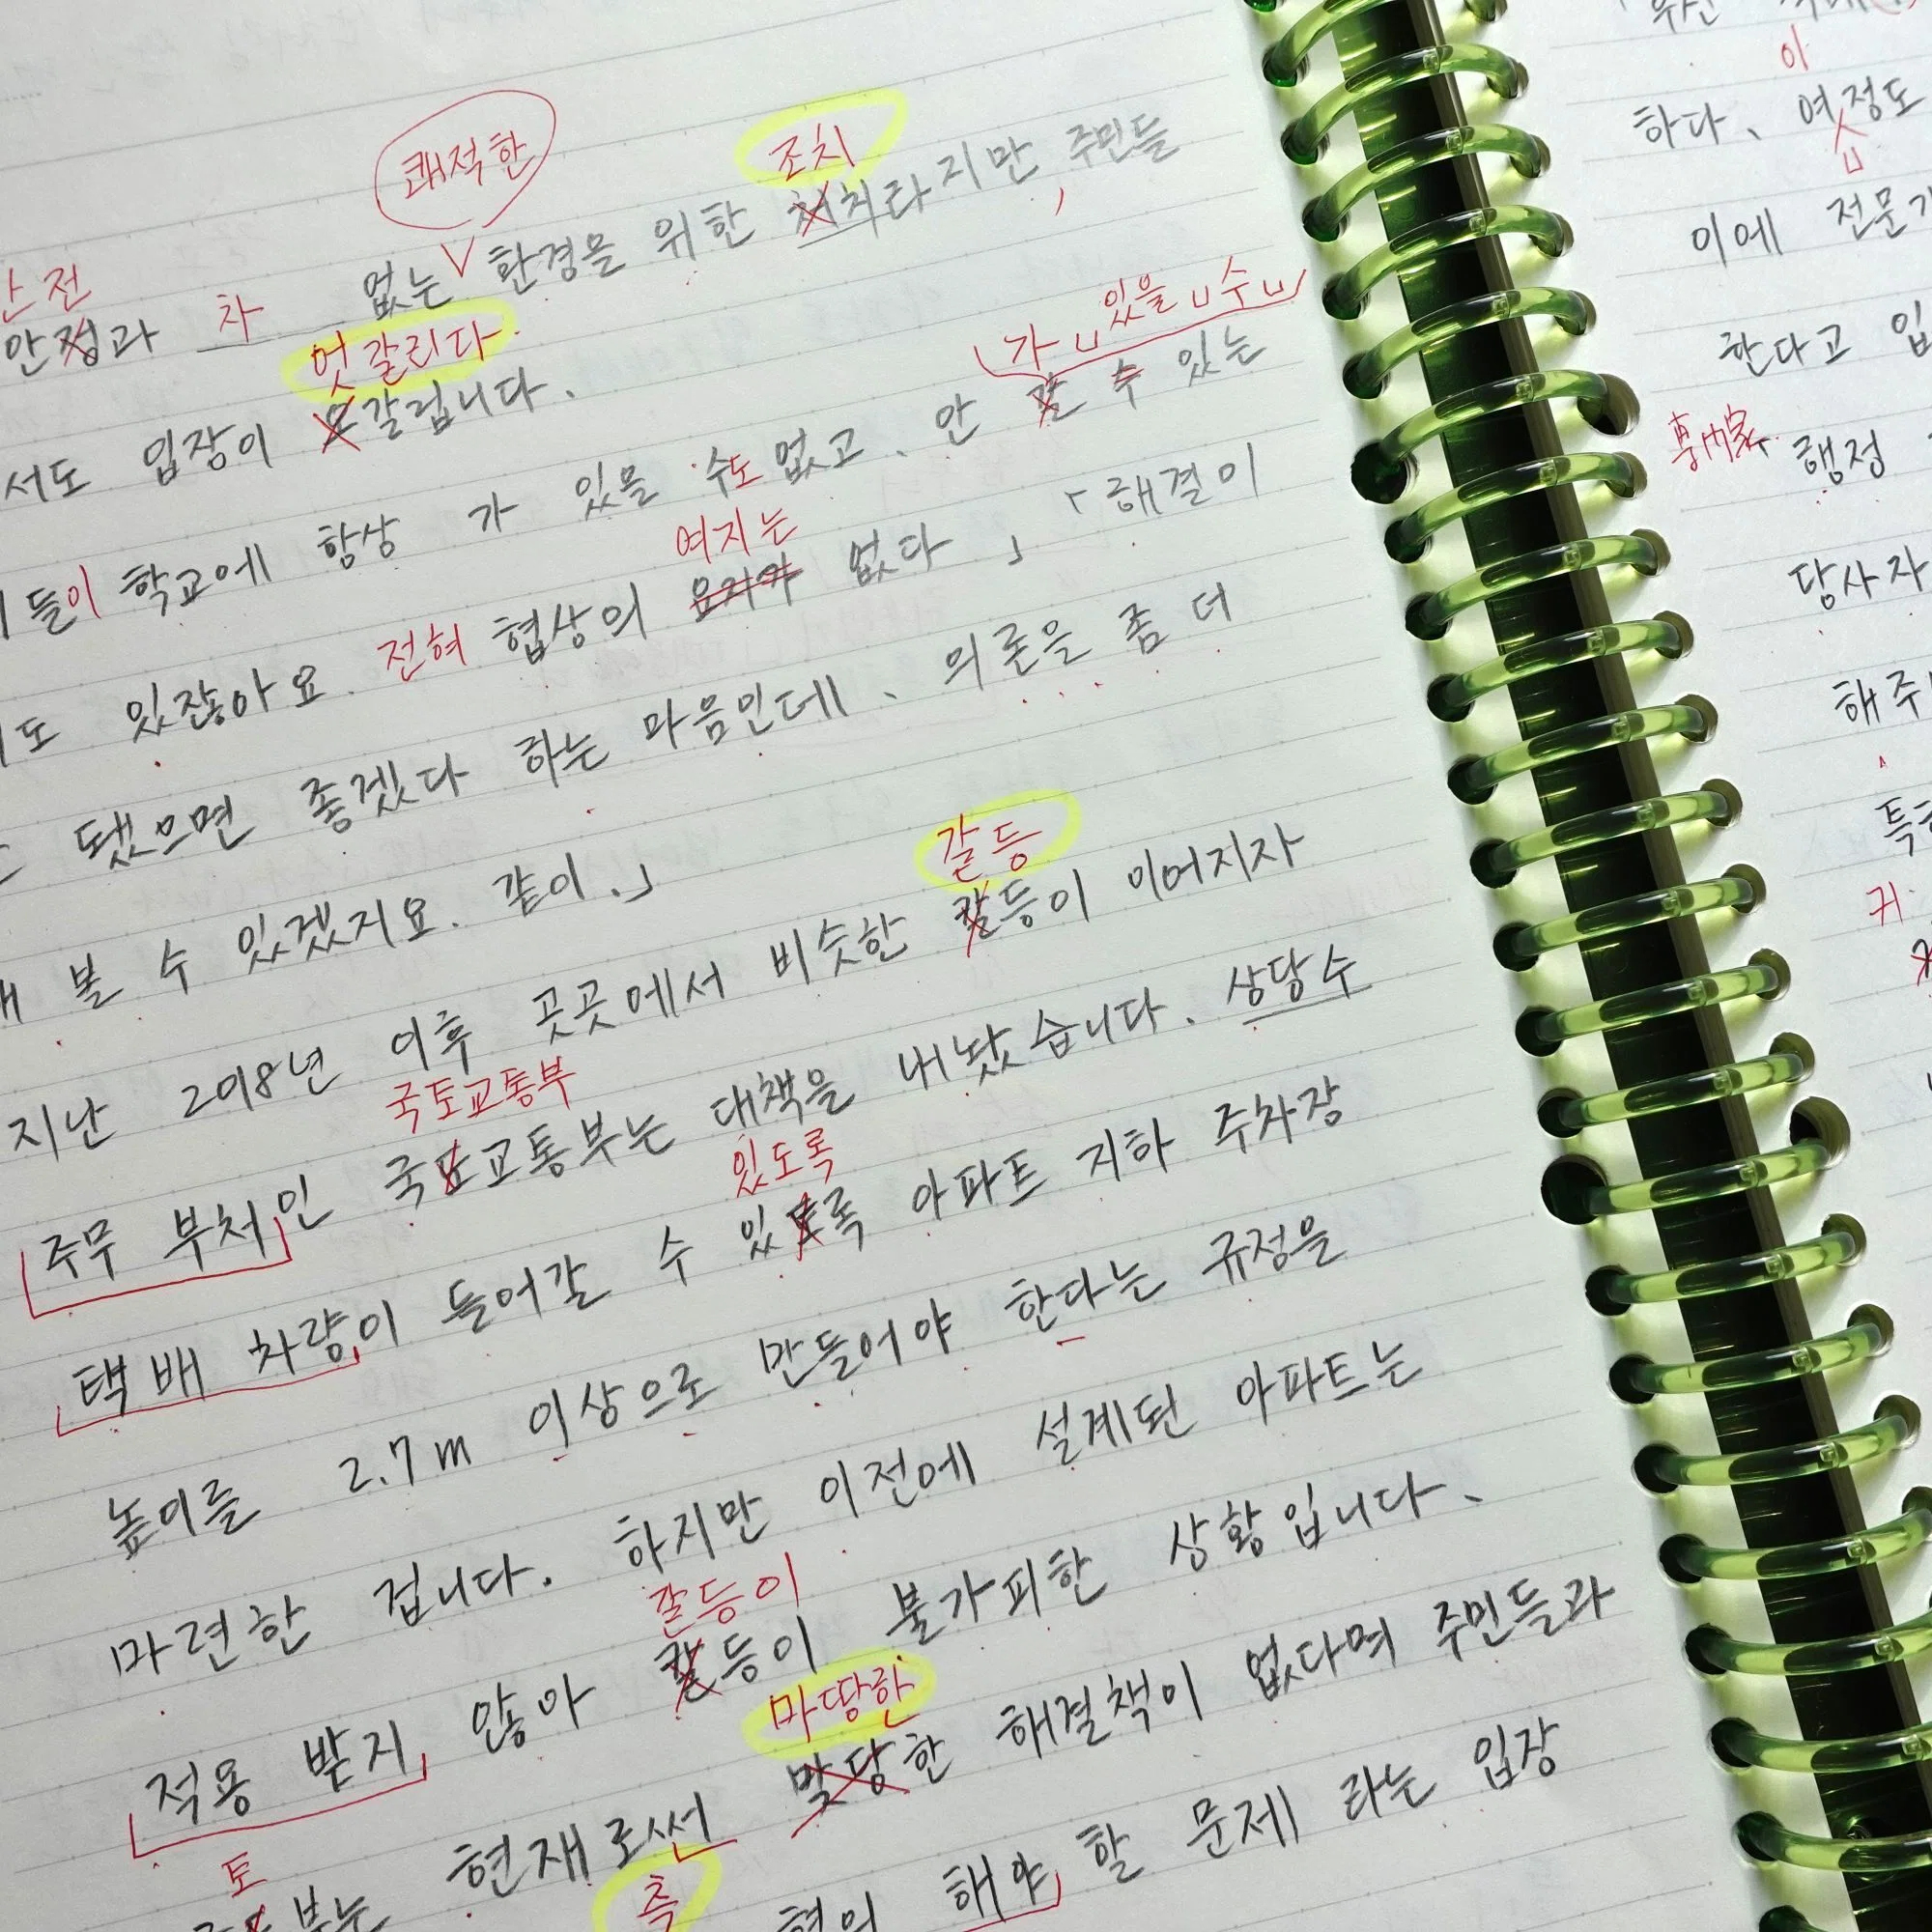 쾌적한 조치
없는 ∨ 환경을 위한 처치라지만, 주민들
안전
안정과 차
엇갈리다
서도 입장이 갈립니다.
가 있을 수
들이 학교에 항상 가 있을 수도 없고、 안 갈 수 있는
여지는
도 있잖아요. 전혀 협상의 요지가 없다 」 「해결이
됐으면 좋겠다 하는 마음인데、 의론을 좀 더
볼 수 있겠지요. 같이.」
갈등
지난 2018년 이후 곳곳에서 비슷한 칼등이 이어지자
국토교통부
주무 부처인 교통부는 대책을 내놨습니다. 상당수
있도록
택배 차량이 들어갈 수 있록 아파트 지하 주차장
높이를 2.7m 이상으로 만들어야 한다는 규정을
마련한 겁니다. 하지만 이전에 설계된 아파트는
갈등이
적용 받지 않아 칼등이 불가피한 상황입니다、
마땅한
현재로써 맞당한 해결책이 없다며 주민들과
토
측
부는 협의 해야 할 문제 라는 입장
이
하다、 여정도
이에
한다고
専门家
행정
당사자
귀